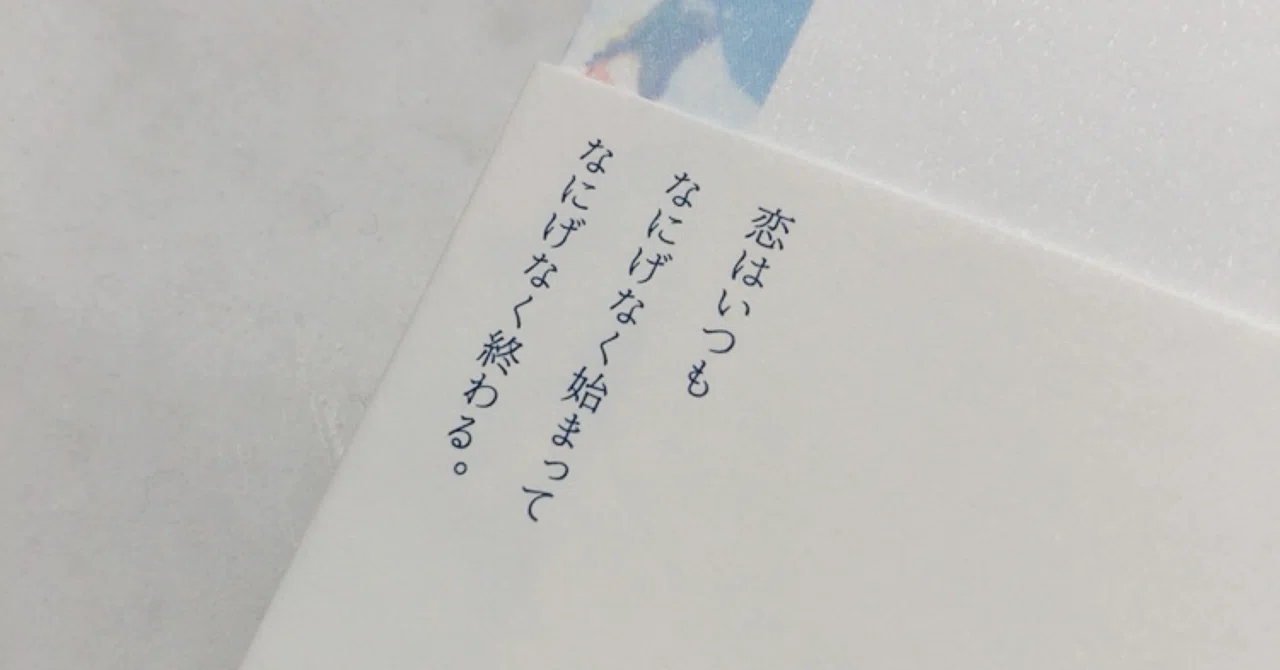 恋はいつも
なにげなく始まって
なにげなく終わる。